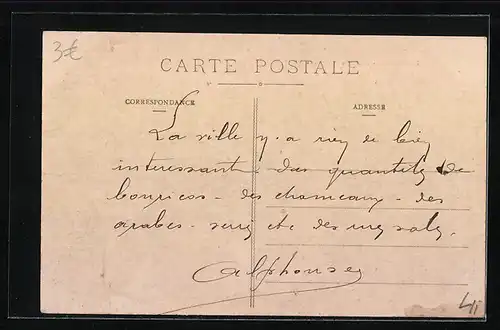 3€
CARTE POSTALE
CORRESPONDANCE
ADRESSE
La ville n'y a rien de bien
interessant des quantités de
bouricos - des chameaux - des
arabes - etc des
Alphonse